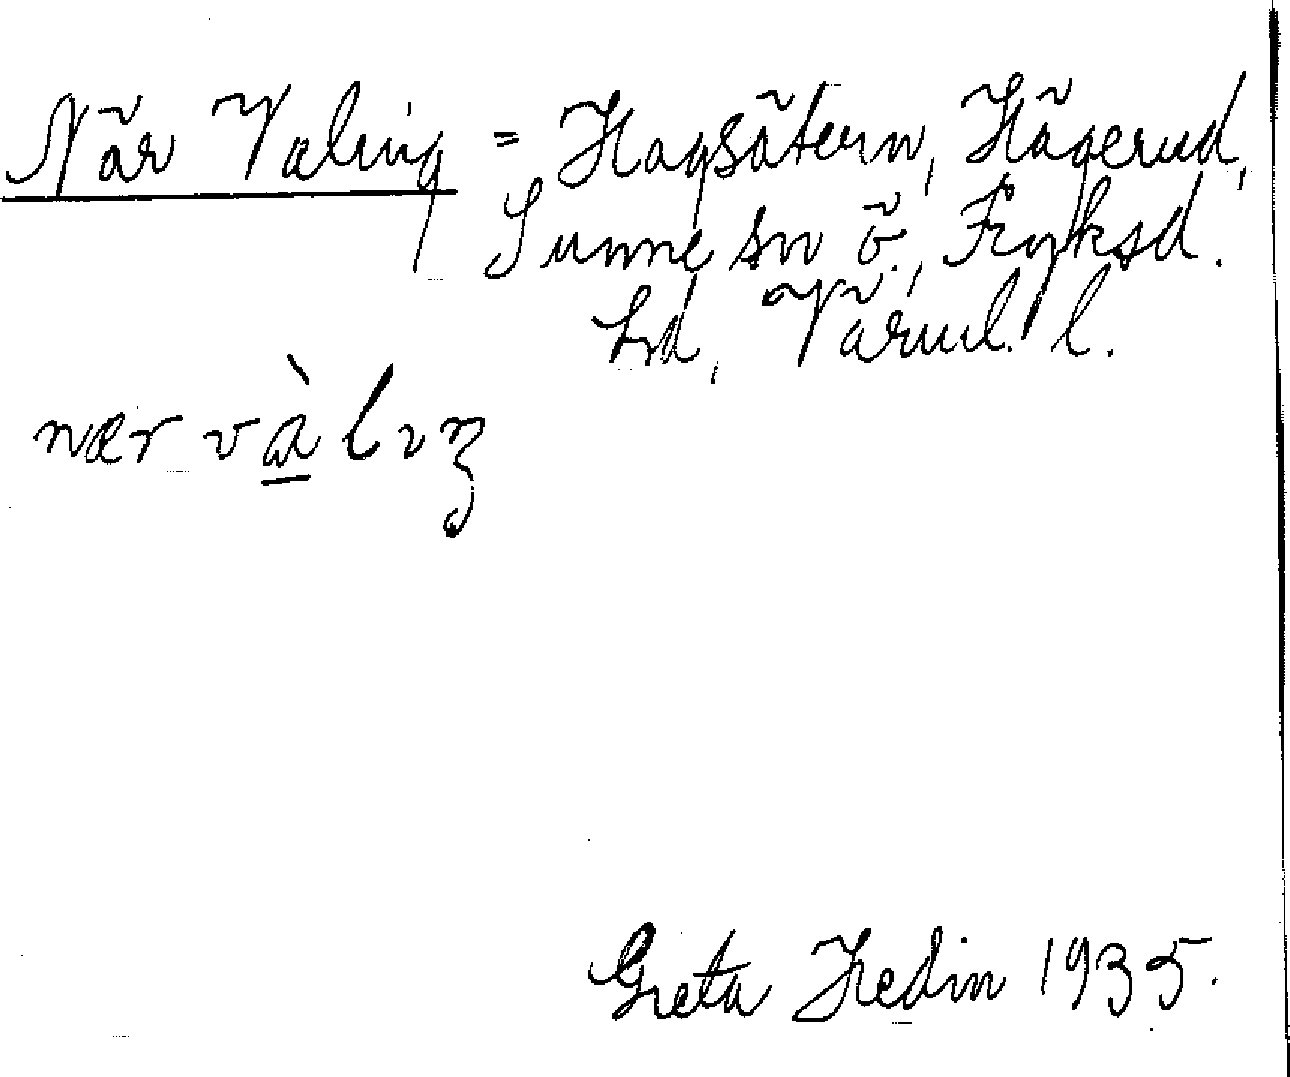 När Valing = Hagsätern, Hägerud,
Sunne sn ö., Fryksd.
hd, Värml. l.
nær và̱lıŋ
Greta Hedin 1935.